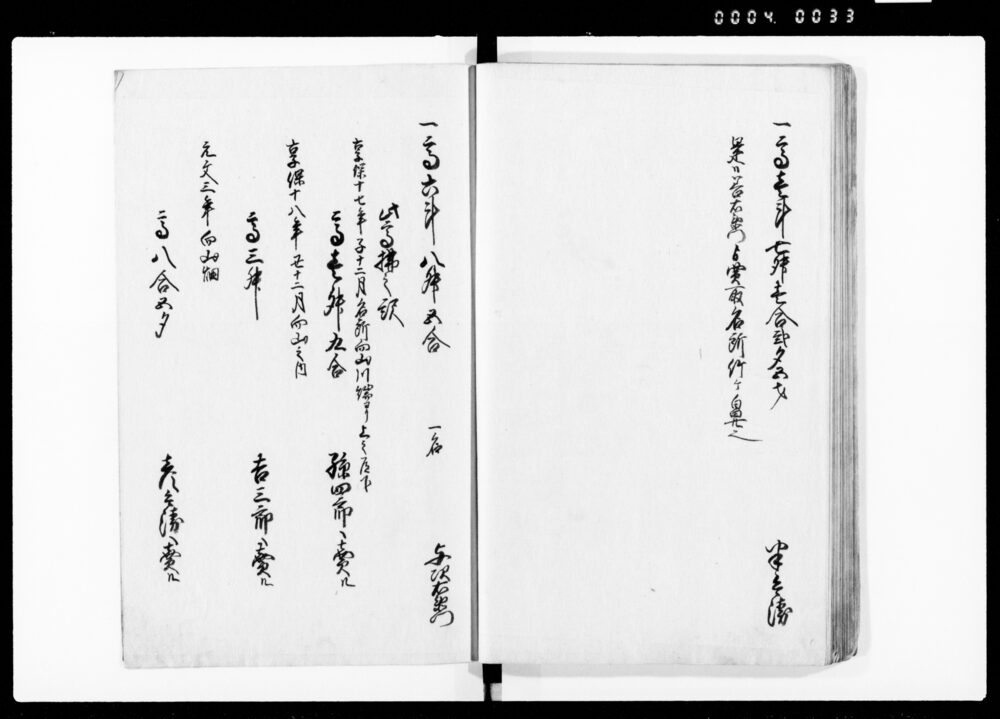 0004 0033
一高壱斗七升壱合弐夕五才
半兵衛
是ハ善右衛門ゟ買取名所竹ヶ鼻之
一高六斗八升五合
与次右衛門
此高拂之訳
享保十七年子十二月名所向山川端ゟ上之
高壱升九合 孫四郎へ賣ル
享保十八年丑十二月向山之内
高三升 吉三郎へ賣ル
元文三年向山畑
高八合五夕 彦兵衛へ賣ル